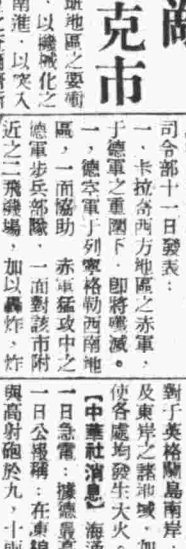 克市
班地區之要衝
以機械化之
南進，以突入
司令部十一日發表：
一，卡拉奇西方地區之赤軍，
于德軍之重圍下，卽將殲滅。
一，德空軍于列寧格勒西南地
區，一面協助　赤軍猛攻中之
德軍步兵部隊，一面對該市附
近之二飛機場，加以轟炸，炸
對于英格蘭島南岸，
及東岸之諸地域，加
使各處均發生大火，
【中華社消息】海
一日急電：據德最高
一日公報稱：在東線
與高射砲於九，十兩